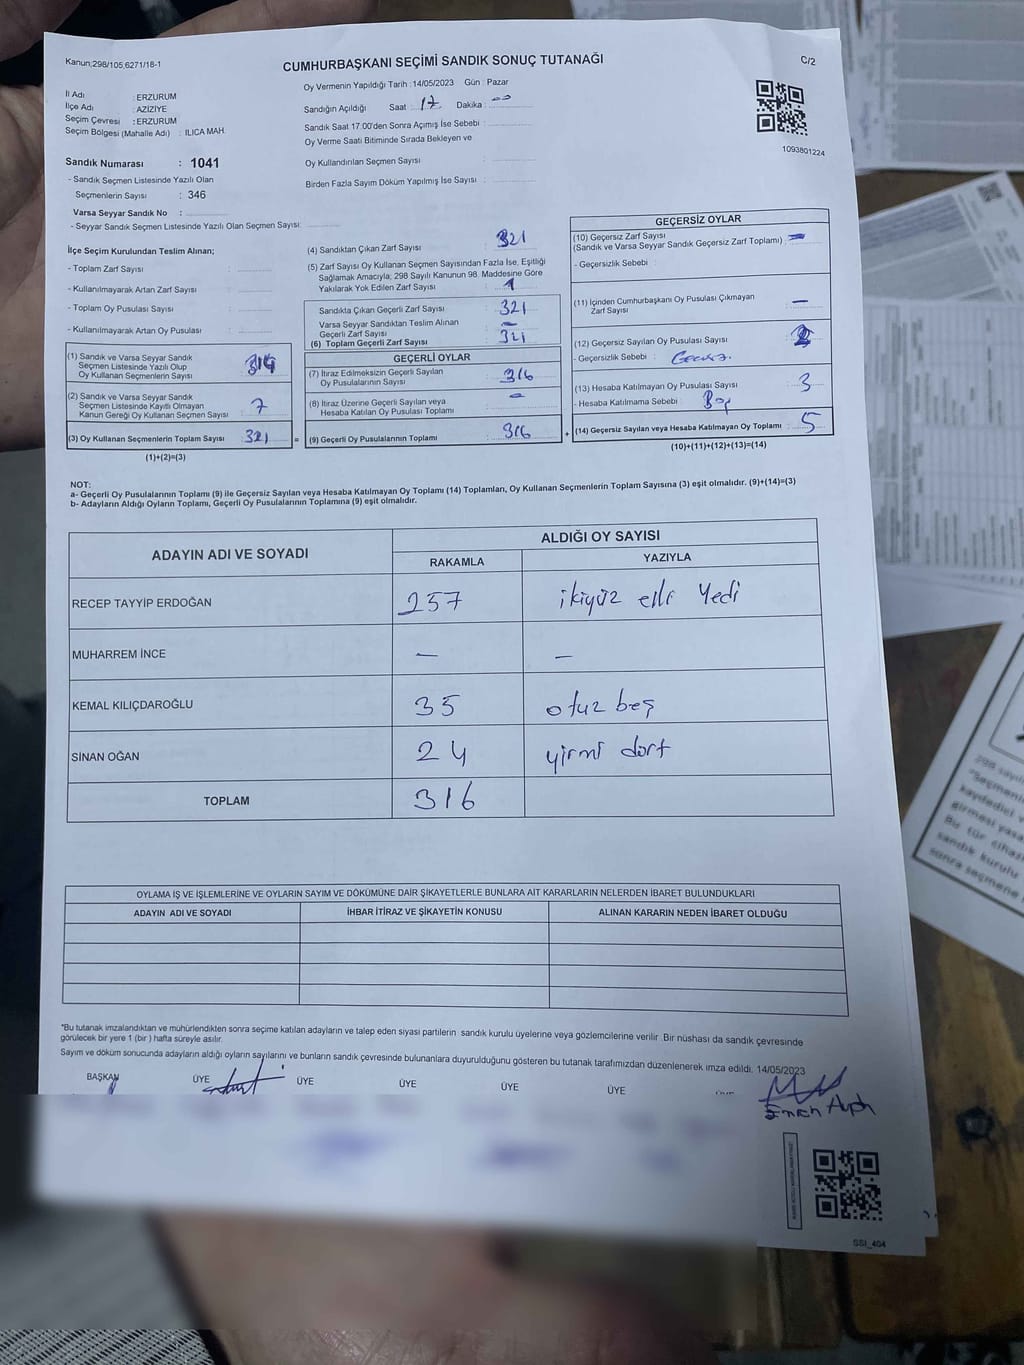 Kanun;298/105,6271/18-1
CUMHURBAŞKANI SEÇİMİ SANDIK SONUÇ TUTANAĞI
C/2
İl Adı : ERZURUM
İlçe Adı : AZİZİYE
Seçim Çevresi : ERZURUM
Seçim Bölgesi (Mahalle Adı) : ILICA MAH.
Oy Vermenin Yapıldığı Tarih : 14/05/2023 Gün : Pazar
Sandığın Açıldığı Saat : 17 Dakika : 00
Sandık Saat 17:00'den Sonra Açımış İse Sebebi :
Oy Verme Saati Bitiminde Sırada Bekleyen ve
Oy Kullandırılan Seçmen Sayısı :
Birden Fazla Sayım Döküm Yapılmış İse Sayısı :
1093801224
Sandık Numarası : 1041
- Sandık Seçmen Listesinde Yazılı Olan
Seçmenlerin Sayısı : 346
Varsa Seyyar Sandık No :
- Seyyar Sandık Seçmen Listesinde Yazılı Olan Seçmen Sayısı:
İlçe Seçim Kurulundan Teslim Alınan;
- Toplam Zarf Sayısı :
- Kullanılmayarak Artan Zarf Sayısı :
- Toplam Oy Pusulası Sayısı :
- Kullanılmayarak Artan Oy Pusulası :
(1) Sandık ve Varsa Seyyar Sandık
Seçmen Listesinde Yazılı Olup
Oy Kullanan Seçmenlerin Sayısı
(2) Sandık ve Varsa Seyyar Sandık
Seçmen Listesinde Kayıtlı Olmayan
Kanun Gereği Oy Kullanan Seçmen Sayısı : 7
(3) Oy Kullanan Seçmenlerin Toplam Sayısı : 321 =
(1)+(2)=(3)
(4) Sandıktan Çıkan Zarf Sayısı : 321
(5) Zarf Sayısı Oy Kullanan Seçmen Sayısından Fazla İse, Eşitliği
Sağlamak Amacıyla; 298 Sayılı Kanunun 98. Maddesine Göre
Yakılarak Yok Edilen Zarf Sayısı :
Sandıkta Çıkan Geçerli Zarf Sayısı : 321
Varsa Seyyar Sandıktan Teslim Alınan
Geçerli Zarf Sayısı : –
(6) Toplam Geçerli Zarf Sayısı : 321
GEÇERLİ OYLAR
(7) İtiraz Edilmeksizin Geçerli Sayılan
Oy Pusulalarının Sayısı : 316
(8) İtiraz Üzerine Geçerli Sayılan veya
Hesaba Katılan Oy Pusulası Toplamı : –
(9) Geçerli Oy Pusulalarının Toplamı : 316 +
GEÇERSİZ OYLAR
(10) Geçersiz Zarf Sayısı
(Sandık ve Varsa Seyyar Sandık Geçersiz Zarf Toplamı) : –
- Geçersizlik Sebebi :
(11) İçinden Cumhurbaşkanı Oy Pusulası Çıkmayan
Zarf Sayısı : –
(12) Geçersiz Sayılan Oy Pusulası Sayısı : 2
- Geçersizlik Sebebi :
(13) Hesaba Katılmayan Oy Pusulası Sayısı : 3
- Hesaba Katılmama Sebebi : Boş
(14) Geçersiz Sayılan veya Hesaba Katılmayan Oy Toplamı : 5
(10)+(11)+(12)+(13)=(14)
NOT:
a- Geçerli Oy Pusulalarının Toplamı (9) ile Geçersiz Sayılan veya Hesaba Katılmayan Oy Toplamı (14) Toplamları, Oy Kullanan Seçmenlerin Toplam Sayısına (3) eşit olmalıdır. (9)+(14)=(3)
b- Adayların Aldığı Oyların Toplamı, Geçerli Oy Pusulalarının Toplamına (9) eşit olmalıdır.
ADAYIN ADI VE SOYADI
ALDIĞI OY SAYISI
RAKAMLA YAZIYLA
RECEP TAYYİP ERDOĞAN 257 ikiyüz elli Yedi
MUHARREM İNCE – –
KEMAL KILIÇDAROĞLU 35 otuz beş
SİNAN OĞAN 24 yirmi dört
TOPLAM 316
OYLAMA İŞ VE İŞLEMLERİNE VE OYLARIN SAYIM VE DÖKÜMÜNE DAİR ŞİKAYETLERLE BUNLARA AİT KARARLARIN NELERDEN İBARET BULUNDUKLARI
ADAYIN ADI VE SOYADI İHBAR İTİRAZ VE ŞİKAYETİN KONUSU ALINAN KARARIN NEDEN İBARET OLDUĞU
*Bu tutanak imzalandıktan ve mühürlendikten sonra seçime katılan adayların ve talep eden siyasi partilerin sandık kurulu üyelerine veya gözlemcilerine verilir. Bir nüshası da sandık çevresinde
görülecek bir yere 1 (bir) hafta süreyle asılır.
Sayım ve döküm sonucunda adayların aldığı oyların sayılarını ve bunların sandık çevresinde bulunanlara duyurulduğunu gösteren bu tutanak tarafımızdan düzenlenerek imza edildi. 14/05/2023
BAŞKAN ÜYE ÜYE ÜYE ÜYE ÜYE
SSI_404
298 sayılı
"Seçmenin
kaydedici
girmesi yasa
Bir tür cihaz
sandık kurulu
sonra seçmene